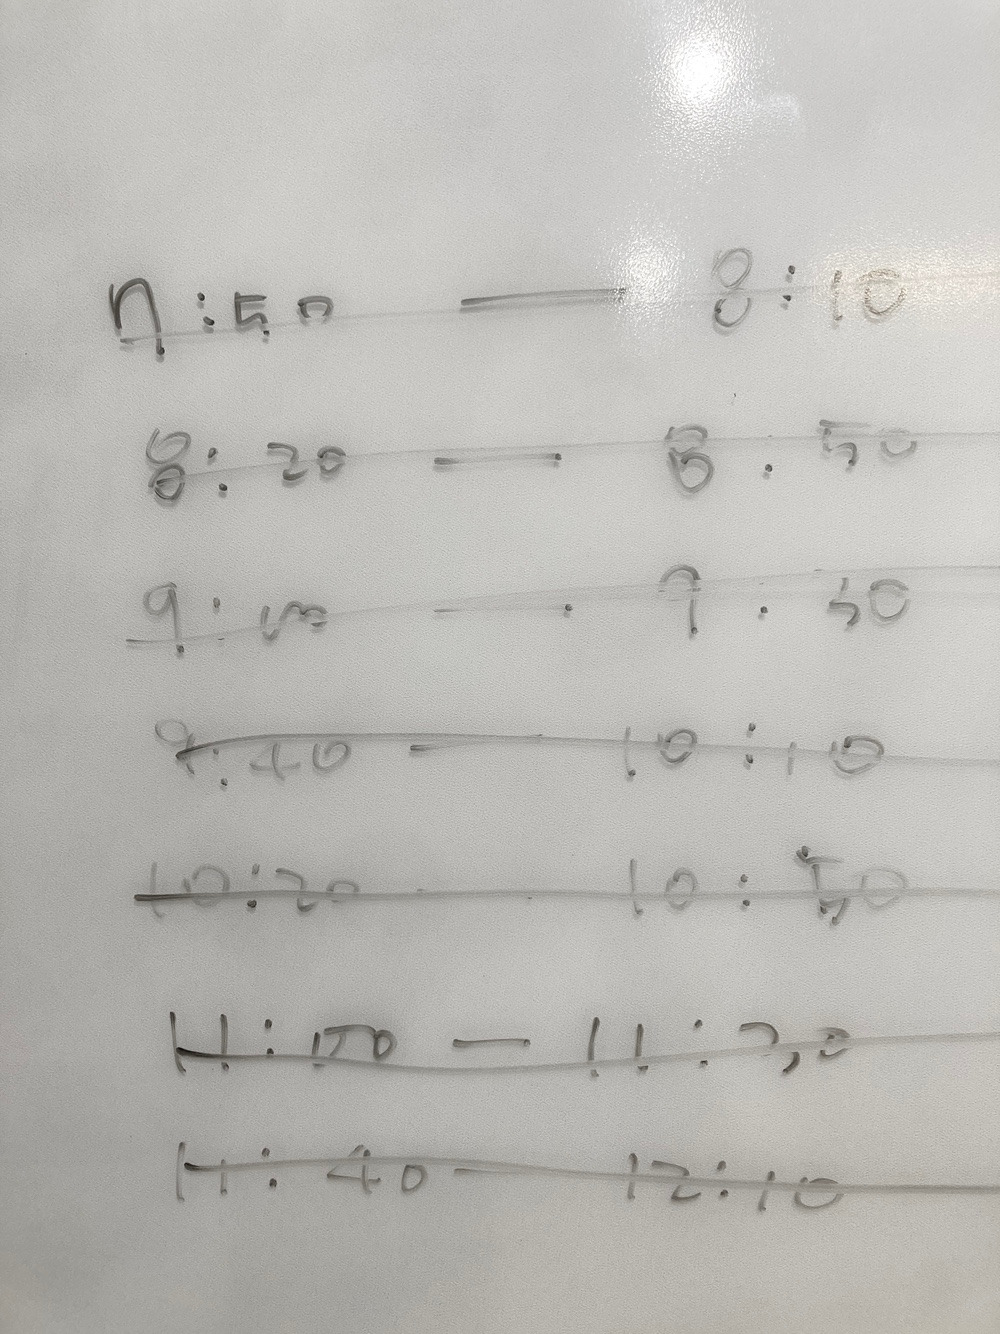 7:50 — 8:10
8:20 — 8:50
9:00 — 9:30
9:40 — 10:10
10:20 — 10:50
11:00 — 11:30
11:40 — 12:10